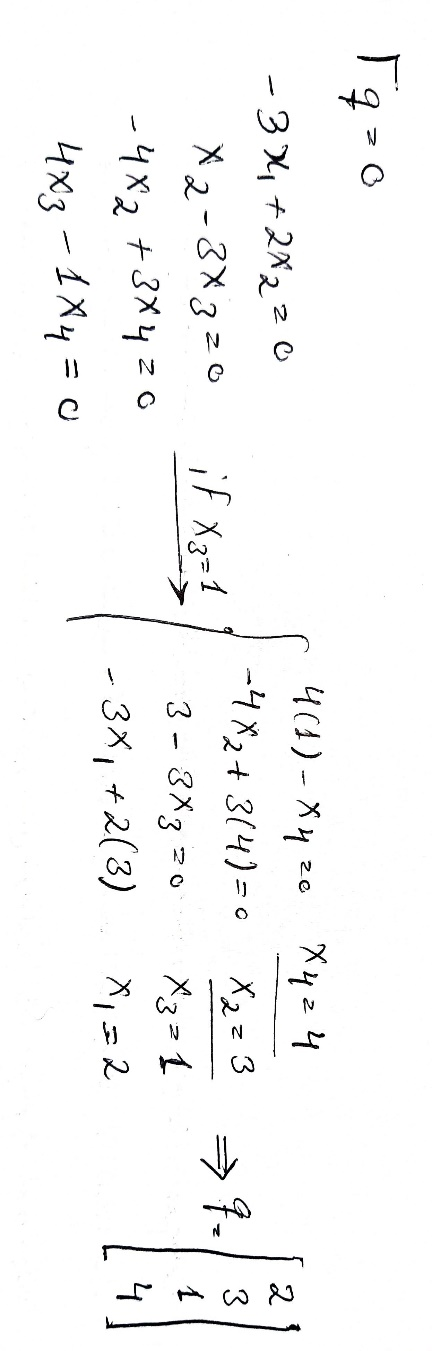 Γq = 0
-3x₁ + 2x₂ = 0
x₂ - 3x₃ = 0
-4x₂ + 3x₄ = 0
4x₃ - 1x₄ = 0
if x₃ = 1
4(1) - x₄ = 0 x₄ = 4
-4x₂ + 3(4) = 0 x₂ = 3
3 - 3x₃ = 0 x₃ = 1
-3x₁ + 2(3) x₁ = 2
⇒ q = [
2
3
1
4
]